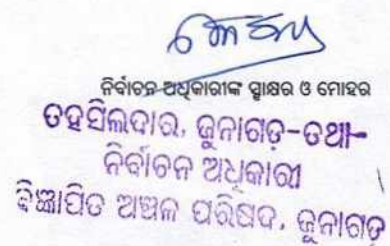 ନିର୍ବାଚନ ଅଧିକାରୀଙ୍କ ସ୍ଵାକ୍ଷର ଓ ମୋହର
ତହସିଲଦାର, ଜୁନାଗଡ଼-ତଥା-
ନିର୍ବାଚନ ଅଧିକାରୀ
ବିଜ୍ଞାପିତ ଅଞ୍ଚଳ ପରିଷଦ, ଜୁନାଗଡ଼